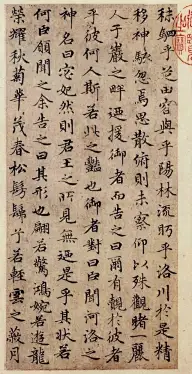 秣駟乎芝田容與乎陽林流眄乎洛川於是精
移神駭忽焉思散俯則未察仰以殊觀睹一麗
人于巖之畔迺援御者而告之曰爾有覿於彼者
乎彼何人斯若此之豔也御者對曰臣聞河洛之
神名曰宓妃然則君王之所見無迺是乎其狀若
何臣願聞之余告之曰其形也翩若驚鴻婉若遊龍
榮耀秋菊華茂春松髣髴兮若輕雲之蔽月